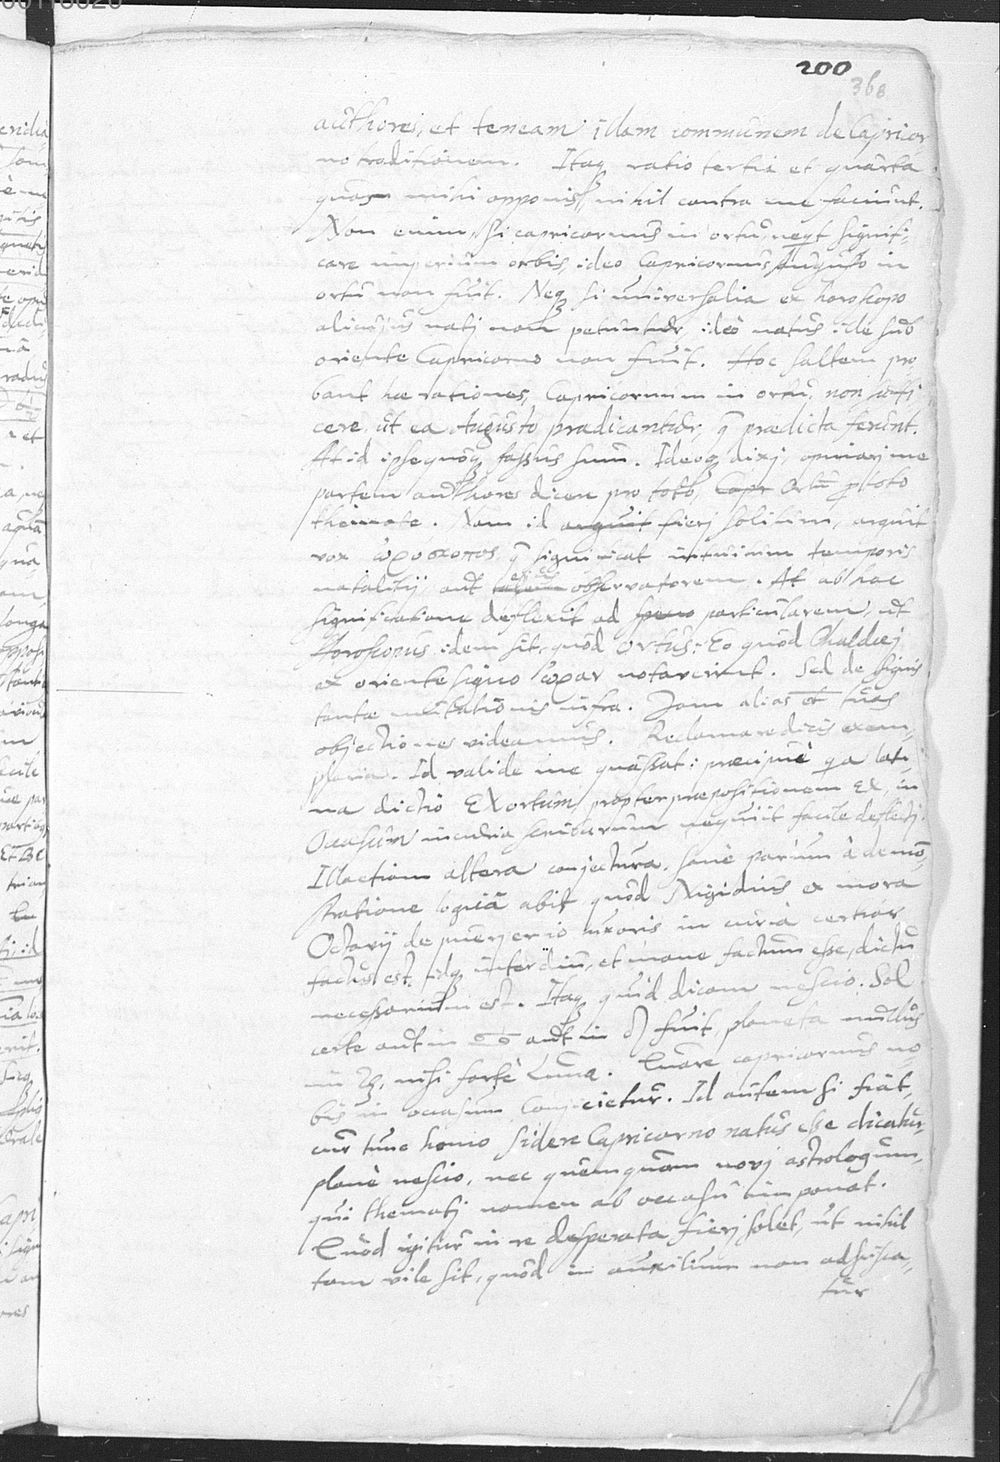 200
368
authores, et teneam illam communem de Capricor
no traditionem. Itaq ratio tertia et quarta
quas mihi opponis, nihil contra me faciunt.
Non enim, si capricornus in ortu neqt signifi-
care imperium orbis, ideo Capricornus Augusto in
ortu non fuit. Neq si universalia ex horoscopo
alicujus natj non petuntur, ideo natus ille sub
oriente Capricorno non fuit. Hoc saltem pro
bant hae rationes, Capricornum in ortu, non suffi
cere, ut ea Augusto praedicantur, q praedicta ferunt.
At id ipse quoq fassus sum. Ideoq dixj, opinarj me
partem authores dicere pro toto, Capr Ortu pro toto
themate. Nam id arguit fierj solitum, arguit
vox ὡροσκοπος q significat intuitum temporis
natalitij, aut ejus observatorem. At ab hac
significatione deflexit ad particularem, ut
Horoscopus idem sit, quod Ortus: Eo quod Chaldaej
ex oriente signo ὡραν notaverint. Sed de signis
tantae mutationis infra. Jam alias et tuas
objectiones videamus. Reclamare dicis exem-
plaria. Id valide me quassat: praecipuè qa lati-
na dictio EXortum propter praepositionem Ex, in
Occasum incuria scribarum nequit facile deflectj.
Illa etiam altera conjectura, sanè parum à demon
stratione logica abit, quod Nigidius ex mora
Octavij de puerperio uxoris in curia certior
factus est. idq interdiu, et mane factum esse, dictu
necessarium est. Itaq quid dicam nescio. Sol
certe aut in ♎ aut in fuit, planeta nullus
in ♑, nisi fortè Luna. Quare capricornus no
bis in occasum conjicietur. Id autem si fiat,
cur tunc homo sidere Capricorno natus esse dicatur,
planè nescio, nec quemquam novj astrologum,
qui thematj nomen ab occasu imponat.
Quod igitur in re desperata fierj solet, ut nihil
tam vile sit, quod in auxilium non adscisca-
tur